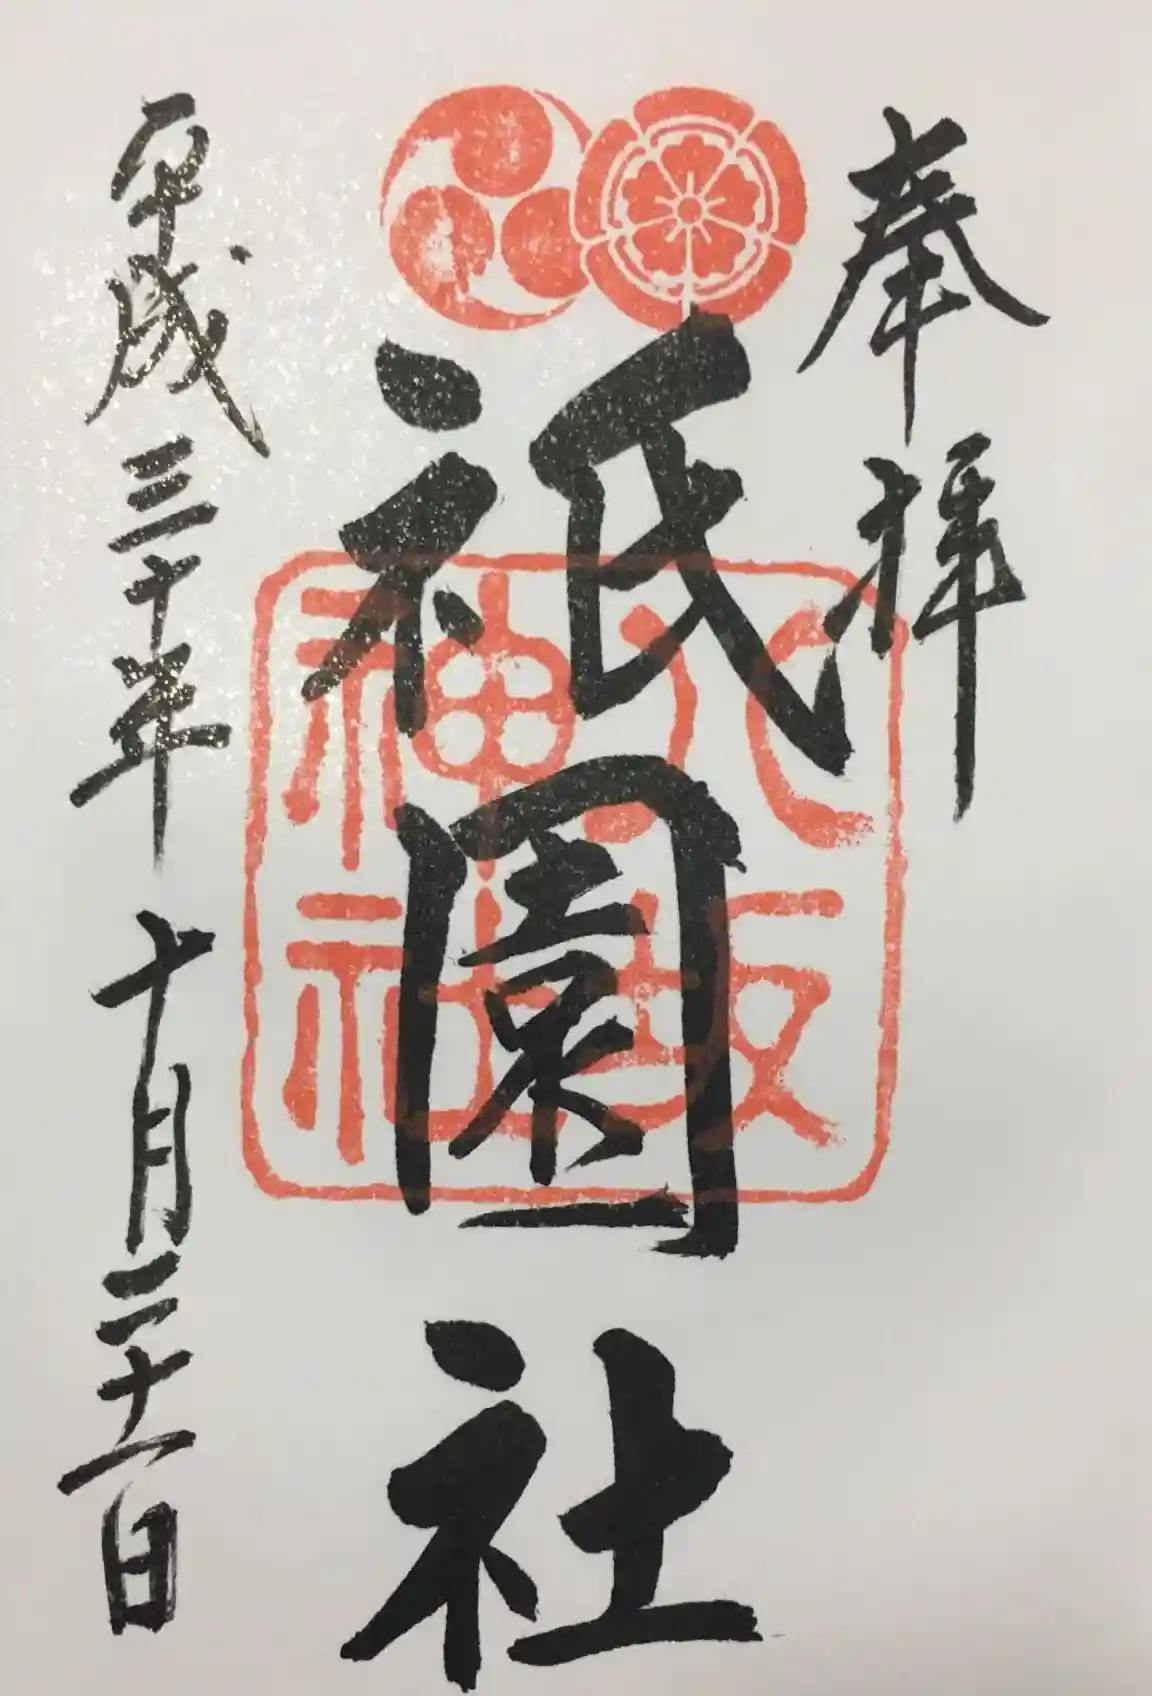 奉拝
祇園社
八坂
神社
平成三十年十月二十一日